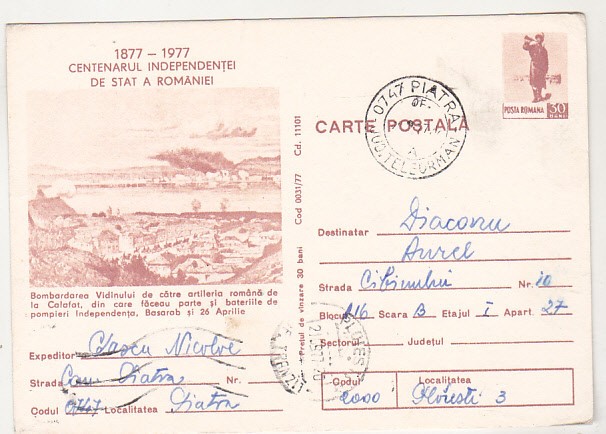 1877 – 1977
CENTENARUL INDEPENDENȚEI
DE STAT A ROMÂNIEI
Bombardarea Vidinului de către artileria română de
la Calafat, din care făceau parte și bateriile de
pompieri Independența, Basarab și 26 Aprilie
Expeditor Nicolae
Strada Com Piatra Nr.
Codul 0747 Localitatea Piatra
Cod 0031/77 Cd. 11101
Prețul de vînzare 30 bani
POSTA ROMANA 30
BANI
0747 PIATRA
OF.
JUD. TELEORMAN
CARTE POȘTALĂ
Destinatar Diaconu
Aurel
Strada Cibinului Nr. 10
Blocul A16 Scara B Etajul I Apart. 27
Sectorul Județul
Codul Localitatea
2000 Ploiești 3
PLOIEȘTI